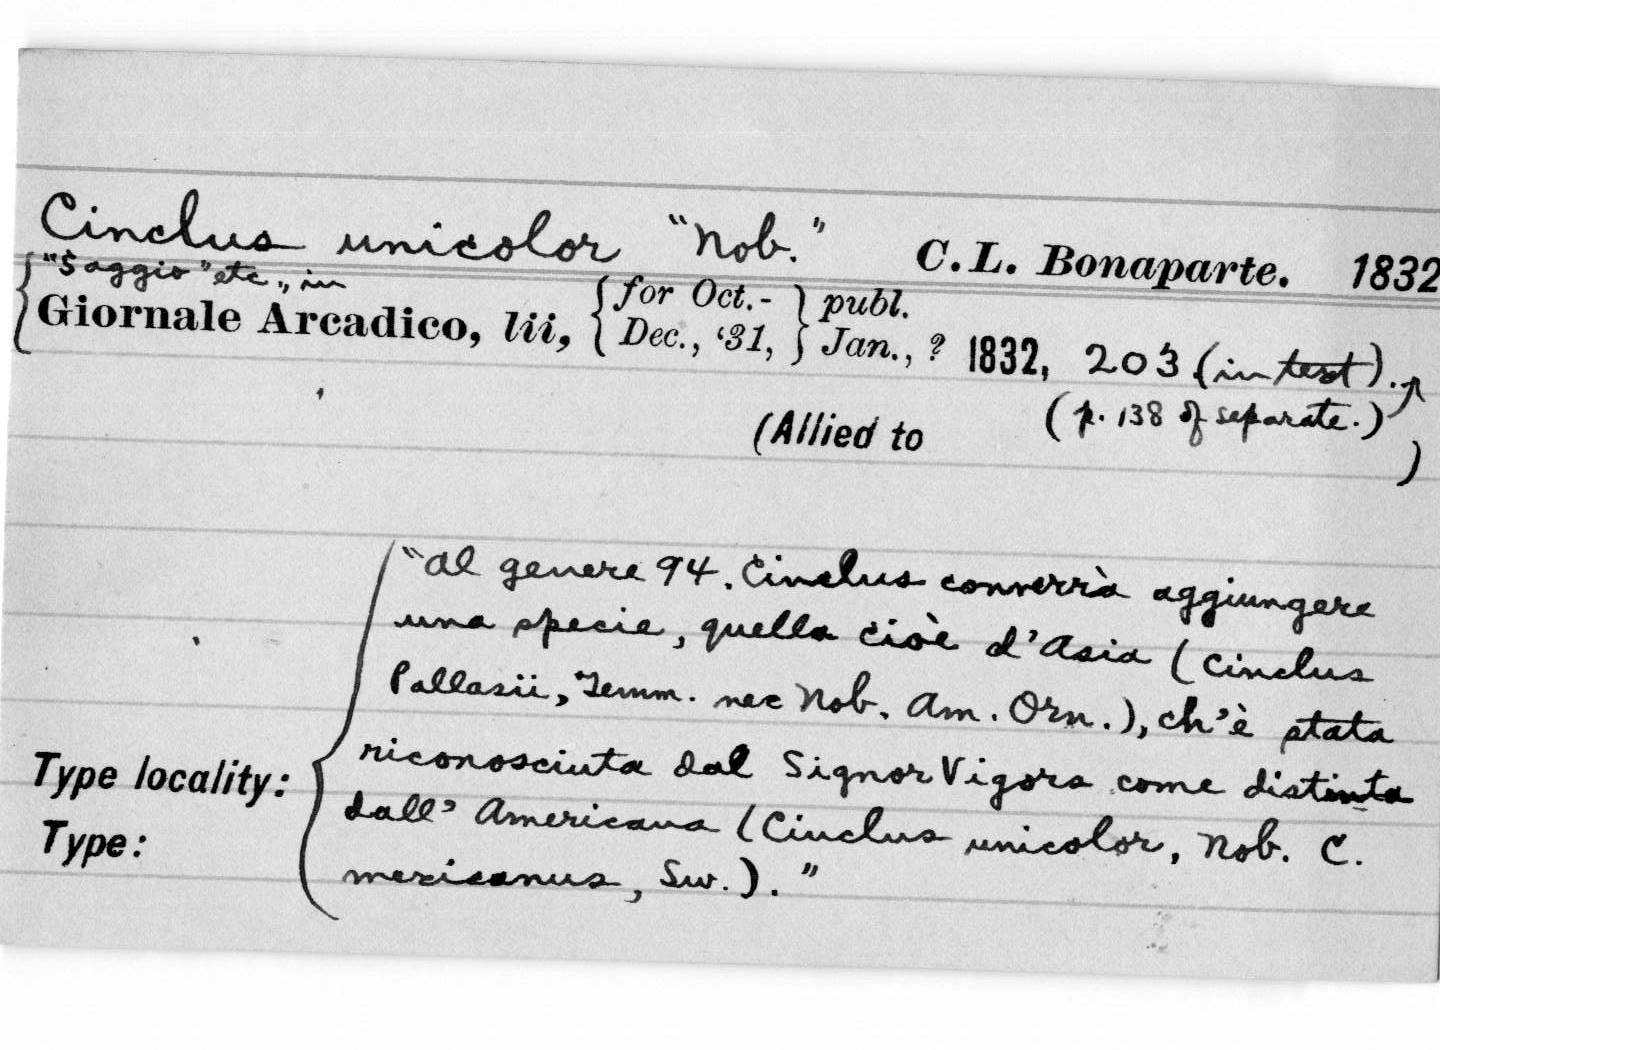 Cinclus unicolor "Nob." C.L. Bonaparte. 1832
"Saggio" etc., in
Giornale Arcadico, lii, { for Oct.- Dec., '31, } publ. Jan., ? 1832, 203 (in text).
(Allied to (p. 138 of separate.) )
"Al genere 94. Cinclus converrà aggiungere
una specie, quella cioè d'Asia (Cinclus
Pallasii, Temm. nec Nob. Am. Orn.), ch'è stata
riconosciuta dal Signor Vigors come distinta
dall' Americana (Cinclus unicolor, Nob. C.
mexicanus, Sw.)."
Type locality:
Type: